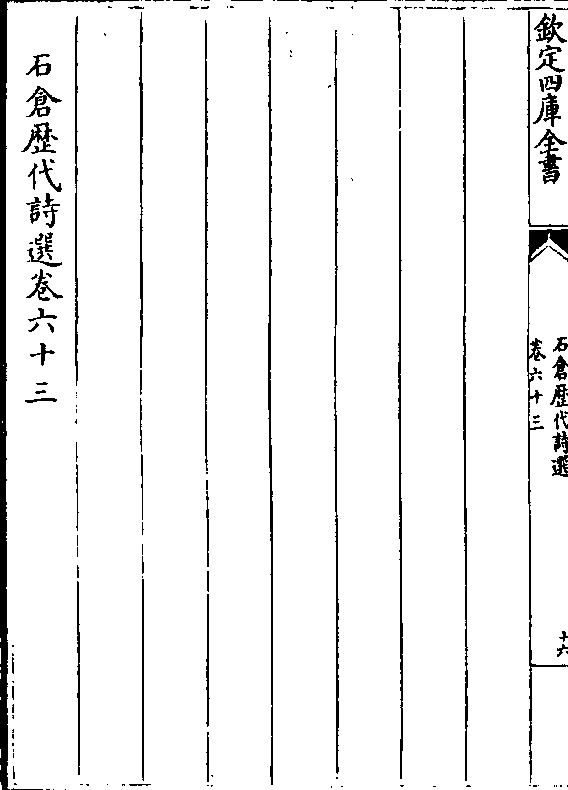 欽定四庫全書
石倉歴代詩選
卷六十三
十六
石倉歴代詩選卷六十三